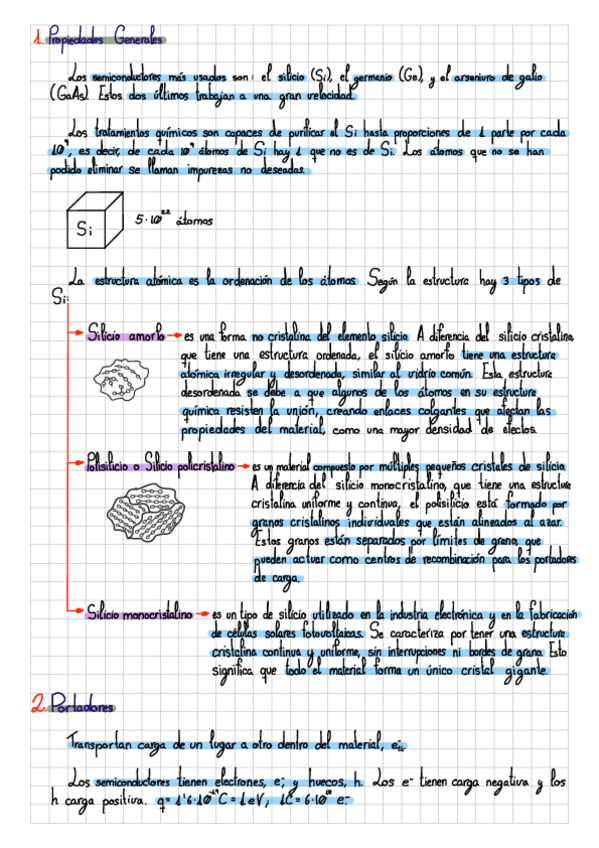 1. Propiedades Generales
Los semiconductores más usados son: el silicio (Si), el germanio (Ge), y el arseniuro de galio
(GaAs). Estos dos últimos trabajan a una gran velocidad.
Los tratamientos químicos son capaces de purificar el Si hasta proporciones de 1 parte por cada
10⁹, es decir, de cada 10⁹ átomos de Si hay 1 que no es de Si. Los átomos que no se han
podido eliminar se llaman impurezas no deseadas.
Si
5·10²² átomos
La estructura atómica es la ordenación de los átomos. Según la estructura hay 3 tipos de
Si:
Silicio amorfo → es una forma no cristalina del elemento silicio. A diferencia del silicio cristalino,
que tiene una estructura ordenada, el silicio amorfo tiene una estructura
atómica irregular y desordenada, similar al vidrio común. Esta estructura
desordenada se debe a que algunos de los átomos en su estructura
química resisten la unión, creando enlaces colgantes que afectan las
propiedades del material, como una mayor densidad de efectos.
Polisilicio o Silicio policristalino → es un material compuesto por múltiples pequeños cristales de silicio.
A diferencia del silicio monocristalino, que tiene una estructura
cristalina uniforme y continua, el polisilicio está formado por
granos cristalinos individuales que están alineados al azar.
Estos granos están separados por límites de grano, que
pueden actuar como centros de recombinación para los portadores
de carga.
Silicio monocristalino → es un tipo de silicio utilizado en la industria electrónica y en la fabricación
de células solares fotovoltaicas. Se caracteriza por tener una estructura
cristalina continua y uniforme, sin interrupciones ni bordes de grano. Esto
significa que todo el material forma un único cristal gigante.
2. Portadores
Transportan carga de un lugar a otro dentro del material,
Los semiconductores tienen electrones, e⁻, y huecos, h. Los e⁻ tienen carga negativa y los
h carga positiva. q = 1'6·10⁻¹⁹C = 1eV; 1C = 6·10¹⁸ e⁻